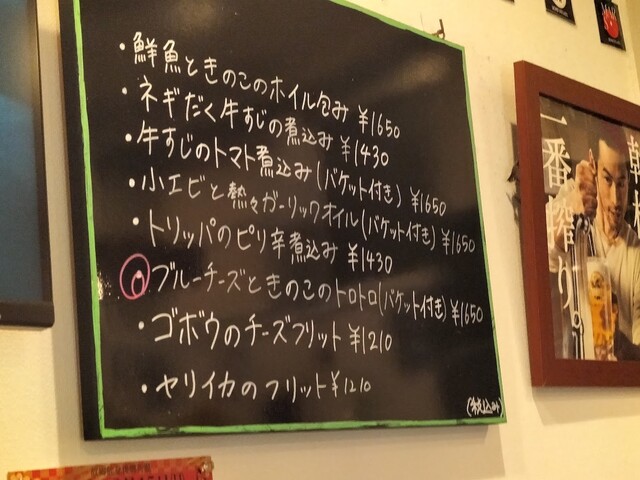 ・鮮魚ときのこのホイル包み ¥1650
・ネギだく牛すじの煮込み ¥1430
・牛すじのトマト煮込み(バケット付き) ¥1650
・小エビと熱々ガーリックオイル(バケット付き) ¥1650
・トリッパのピリ辛煮込み ¥1430
ブルーチーズときのこのトロトロ(バケット付き) ¥1650
・ゴボウのチーズフリット ¥1210
・ヤリイカのフリット ¥1210
(税込み)
一番搾り。